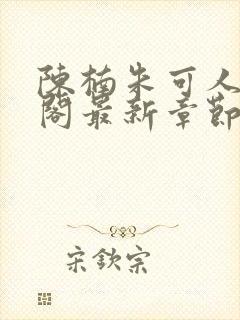 陳楠朱可人
閣最新章節
宋欽宗